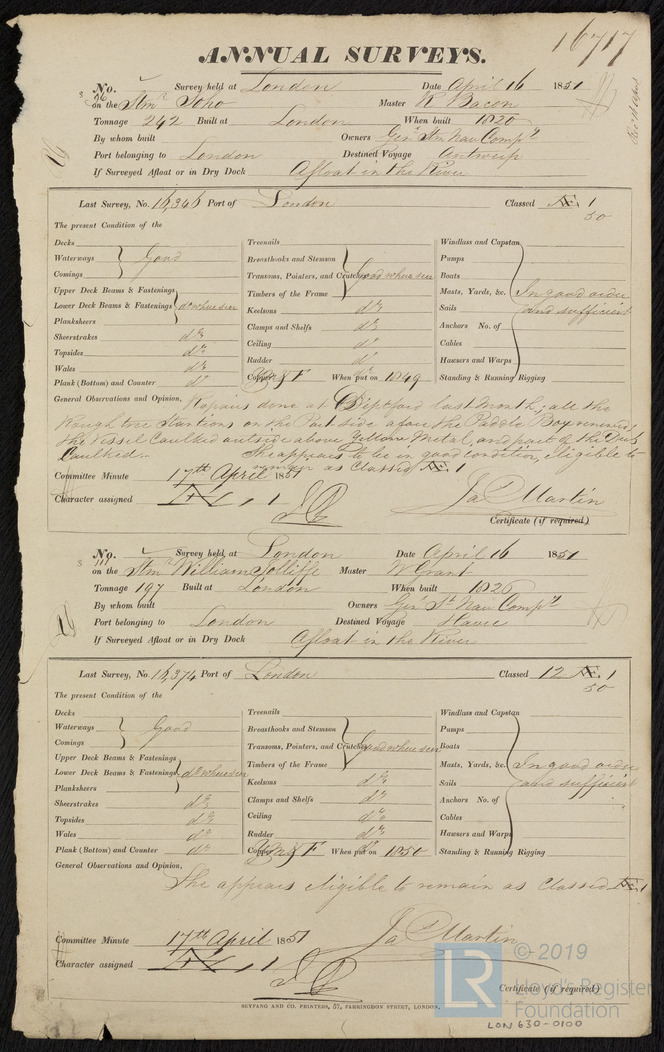 16717
ANNUAL SURVEYS.
No. 96 Survey held at London Date April 16 1851
on the Stmr Soho Master R Bacon
Tonnage 242 Built at London When built 1820
By whom built Owners Genl Stm Nav Compy
Port belonging to London Destined Voyage Antwerp
If Surveyed Afloat or in Dry Dock Afloat in the River
Last Survey, No. 16,346 Port of London Classed Æ 1
50
The present Condition of the
Decks
Waterways Good
Comings
Upper Deck Beams & Fastenings
Lower Deck Beams & Fastenings do where seen
Planksheers
Sheerstrakes do
Topsides do
Wales do
Plank (Bottom) and Counter do
Treenails
Breasthooks and Stemson
Transoms, Pointers, and Crutches Good where seen
Timbers of the Frame
Keelsons do
Clamps and Shelfs do
Ceiling do
Rudder do
Copper Y M & F When put on 1849
Windlass and Capstan
Pumps
Boats
Masts, Yards, &c. In good order
Sails and sufficient
Anchors No. of
Cables
Hawsers and Warps
Standing & Running Rigging
General Observations and Opinion, Repairs done at Deptford last Month; all the
Rough tree Stantions on the Port side afore the Paddle Box renewed
the Vessel Caulked outside above Yellow Metal, and part of the Deck
Caulked. She appears to be in good condition, eligible to
remain as Classed Æ 1
Committee Minute 17th April 1851
Character assigned Æ 1
Ja Martin
Certificate (if required)
No. 111 Survey held at London Date April 16 1851
on the Stmr William Jolliffe Master W Grant
Tonnage 197 Built at London When built 1826
By whom built Owners Genl St Nav Compy
Port belonging to London Destined Voyage Havre
If Surveyed Afloat or in Dry Dock Afloat in the River
Last Survey, No. 16,374 Port of London Classed 12 Æ 1
50
The present Condition of the
Decks
Waterways Good
Comings
Upper Deck Beams & Fastenings
Lower Deck Beams & Fastenings do where seen
Planksheers
Sheerstrakes do
Topsides do
Wales do
Plank (Bottom) and Counter do
Treenails
Breasthooks and Stemson
Transoms, Pointers, and Crutches Good where seen
Timbers of the Frame
Keelsons do
Clamps and Shelfs do
Ceiling do
Rudder do
Copper Y M & F When put on 1850
Windlass and Capstan
Pumps
Boats
Masts, Yards, &c. In good order
Sails and sufficient
Anchors No. of
Cables
Hawsers and Warps
Standing & Running Rigging
General Observations and Opinion,
She appears eligible to remain as Classed Æ 1
Committee Minute 17th April 1851
Character assigned Æ 1
Ja Martin
Certificate (if required)
SEYFANG AND CO. PRINTERS, 57, FARRINGDON STREET, LONDON.
LR © 2019
Lloyd's Register
Foundation
LON 630-0100